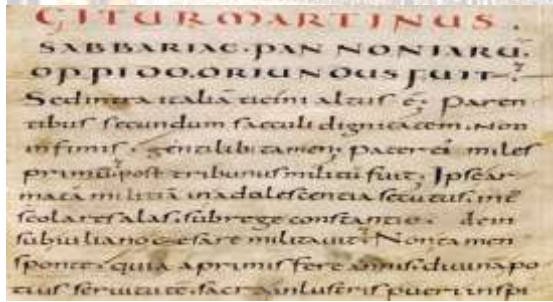 GITUR MARTINUS.
SABBARIAE·PANNONIARŪ·
OPPIDO·ORIUNDUS FUIT·
Sed intra italiā ticini altus ē; Paren
tibus secundum saeculi dignitatem· Non
infimis· gentilib; tamen; Pater ei miles
primū· post tribunus militū fuit; Ipse ar
matā militiā in adolescentia secutus; int
scolares alas· sub rege constantio· dein
sub iuliano cesare militauit; Non tamen
sponte· quia a primis fere annis· diuinā po
tius seruitute· sacra inlustris pueri inspi